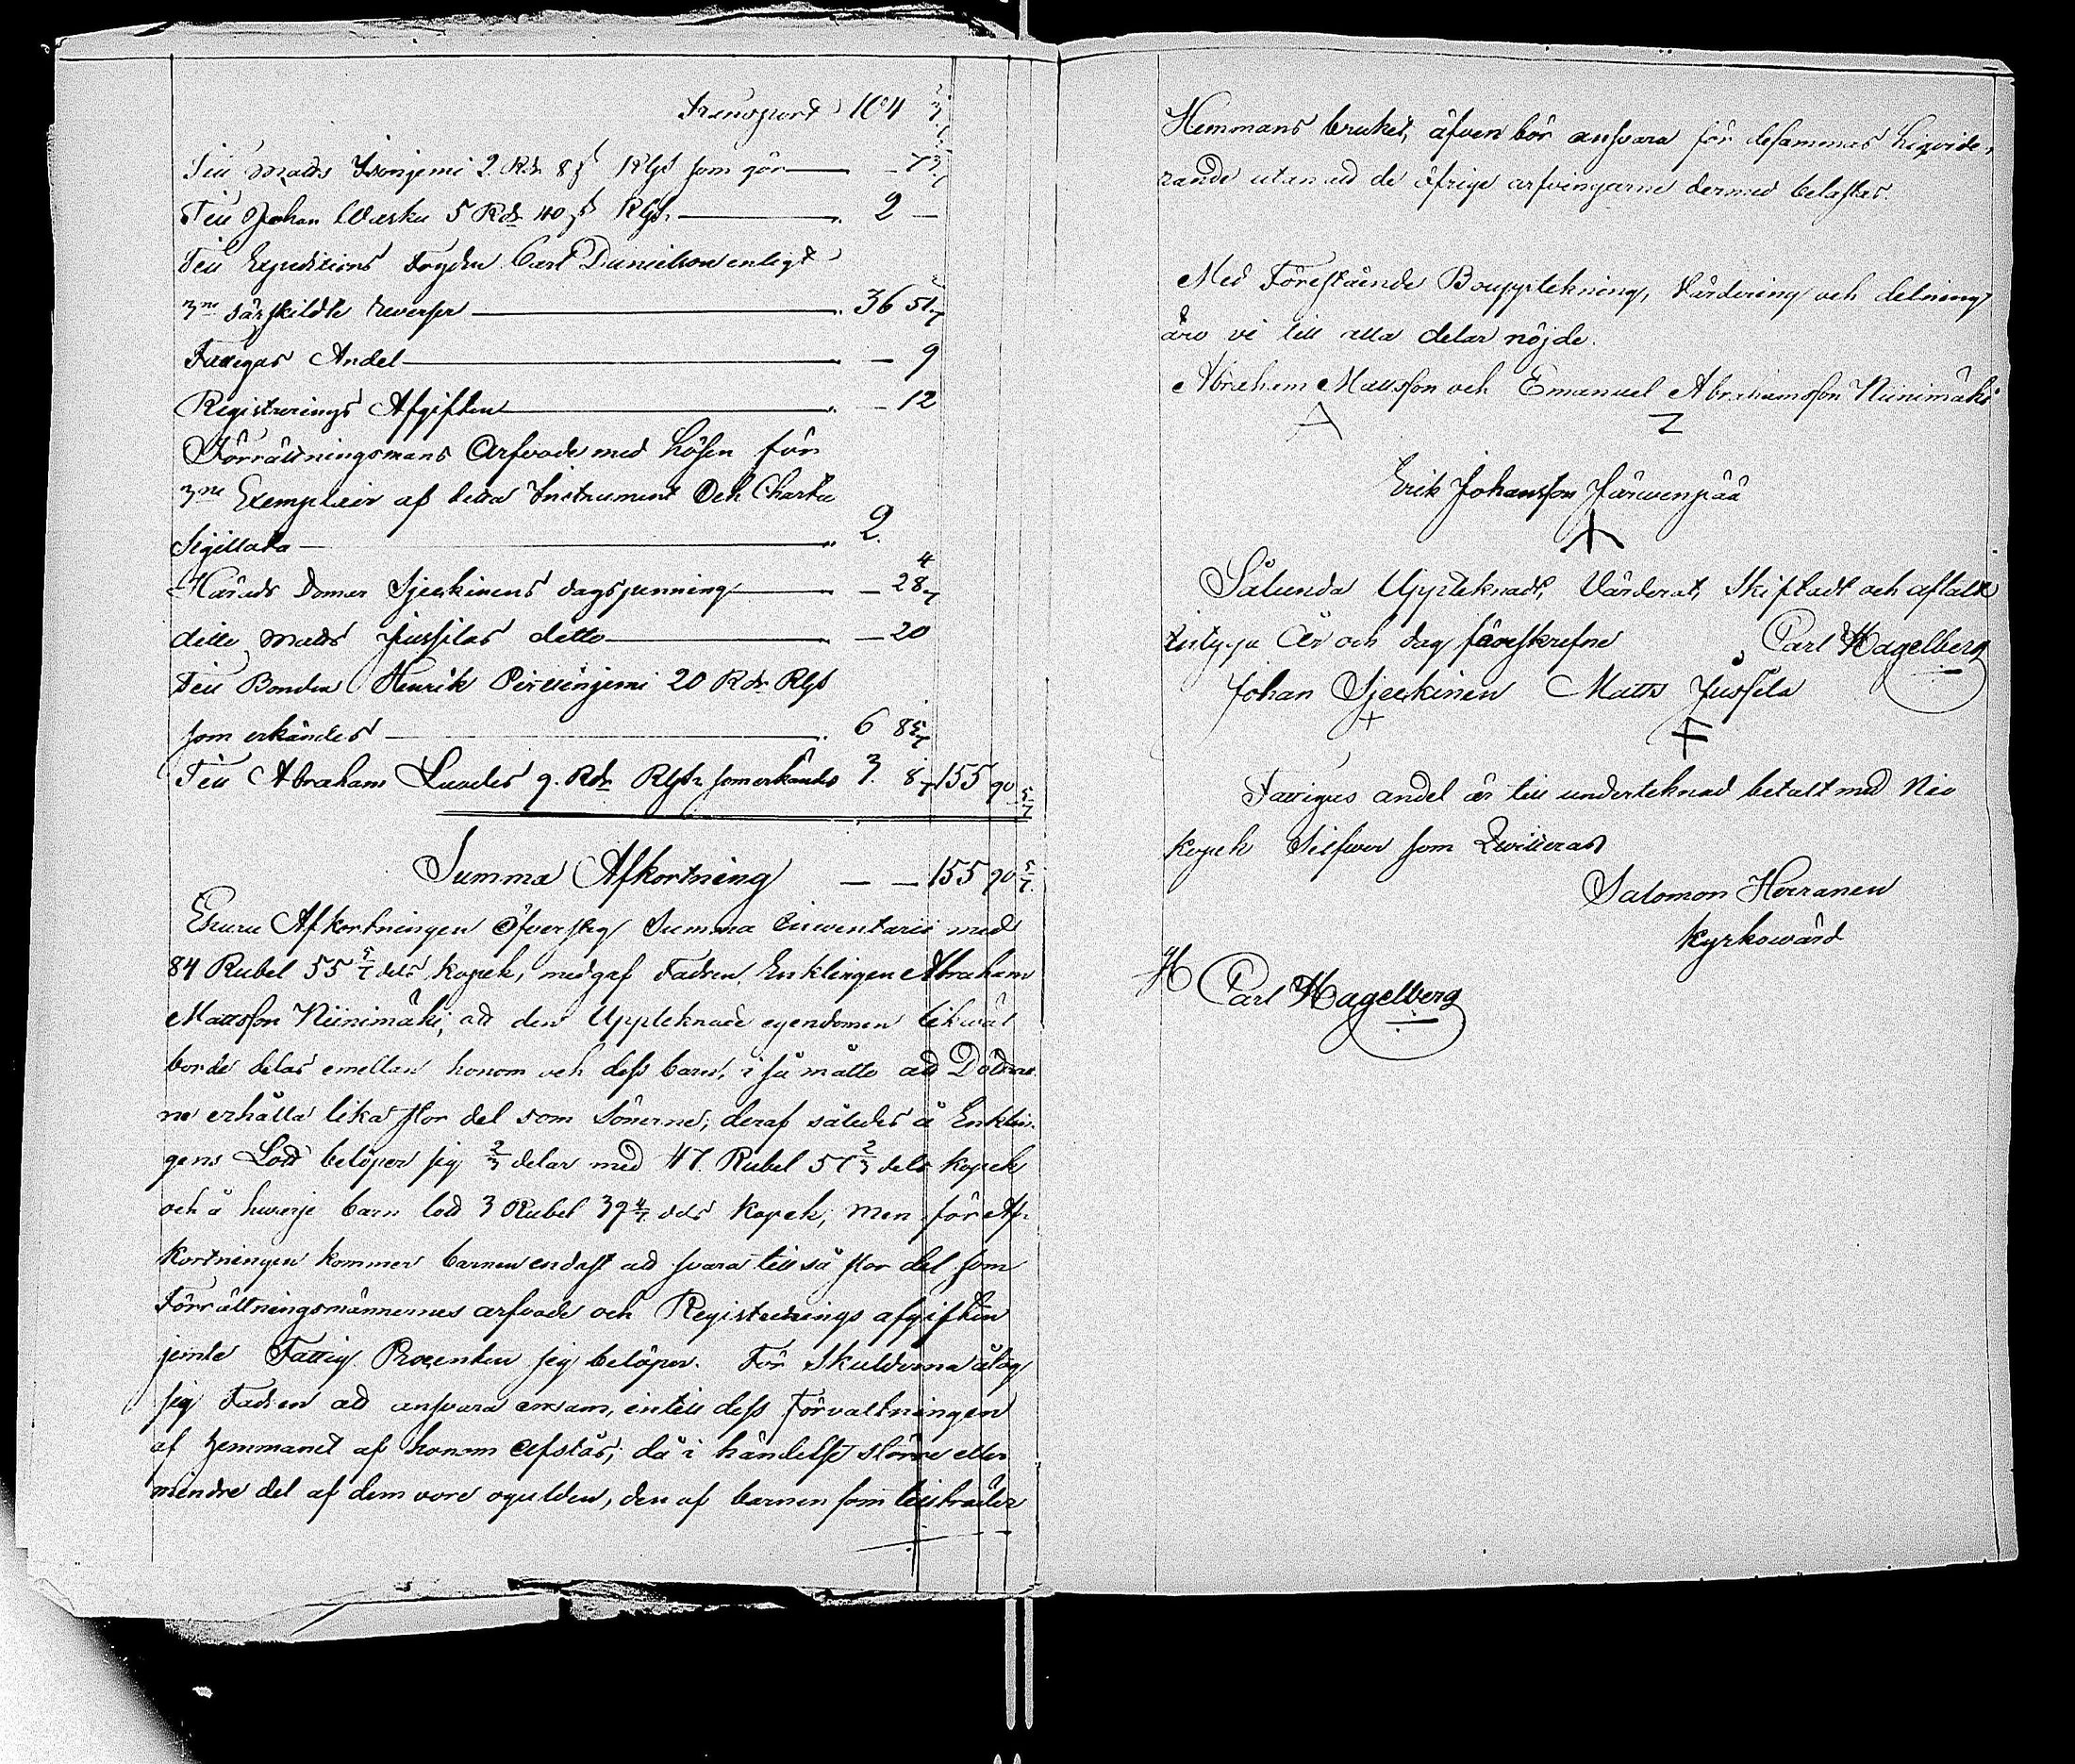 Transport 104
Till Matts Isoniemi 2 Rdr 8 ß Rgs som gör — 7 3/7
Till Johan Waska 5 Rdr 40 ß Rgs. 2 —
Till Expeditions Fogden Carl Danielson enligt
3ne särskildte reverser 36 51
Fattigas Andel — 9
Registrerings Afgiften — 12
Förrättningsmans Arfvode med Lösen för
3ne Exemplair af detta Instrument Och Charta
Sigillata 2.
Härads Domar Sjelkinens dagspenning — 28 4/7
ditto Matts Jussilas ditto — 20
Till Bonden Henrik Perttiniemi 20 Rdr Rgs
som erkändes 6 85
Till Abraham 9. Rdr Rgs som erkändes 3. 8 155 90 5/7
Summa Afkortning — — 155 90 5/7.
Ehuru Afkortningen öfversteg Summa Inventarii med
84 Rubel 55 5/7 dels Kopek, medgaf Fadren, Enklingen Abraham
Mattsson Niinimäki, att den Uppteknade egendomen likväl
borde delas emellan honom och dess barn, i så måtto att Döttrar-
ne erhålla lika stor del som Sönerne; deraf således å Enklin-
gens Lott belöper sig 2/3 delar med 47. Rubel 57 2/3 dels Kopek
och å hvarje barn lott 3 Rubel 39 4/7 dels Kopek; men för Af-
kortningen kommer barnen endast att svara till så stor del som
Förrättningsmännernes arfvode och Registrerings afgiften
jemte Fattig Procenten sig belöper. För Skulderna åtog
sig Fadren att ansvara ensam, intill dess Förvaltningen
af Hemmanet af honom Afstås; då i händelse större eller
mindre del af dem vore ogulden, den af barnen som tillträder
Hemmans bruket, äfven bör ansvara för desammas liqvide-
rande utan att de öfrige arfvingarne dermed belastas.
Med Förestående Bouppteknig, Värdering och delning
äro vi till alla delar nöjde.
Abraham Mattsson och Emanuel Abrahamsson Niinimäki
Erik Johansson Järwenpää
Sålunda Uppteknadt, Värderat, Skiftadt och aftalt
intyga År och dag föreskrefne Carl Hagelberg
Johan Sjelkinen Matts Jussila
Fattigas andel är till undertecknad betalt med Nio
Kopek Silfwer som Qwitteras
Salomon Herranen
Kyrkowärd
Carl Hagelberg